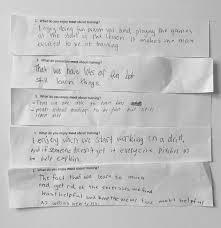 2. What do you enjoy most about training?
I enjoy doing fun warm ups and playing the games
at the end of the lesson. It makes me more
excited to be at training
2. What do you enjoy most about training?
that we have lots of fun but
still learn things.
2. What do you enjoy most about training?
- That we are able to have fun
2. What do you enjoy most about training?
I enjoy when we start working on a drill,
and if someone doesn't get it everyone pitches in
to help explain.
2. What do you enjoy most about training?
The fact that we learn so much
and get rid of the exercises we find
least helpful and have the ones we find most helpful